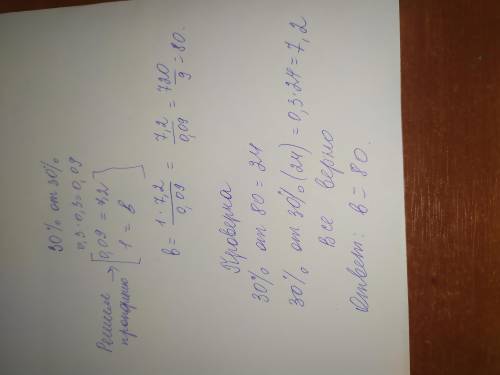 30% от 30%
0,3·0,3=0,09
Решаем пропорцию → [0,09 = 7,2
1 = в]
в = 1·7,2/0,09 = 7,2/0,09 = 720/9 = 80.
Проверка
30% от 80 = 24
30% от 30% (24) = 0,3·24 = 7,2
Все верно
Ответ: в = 80.